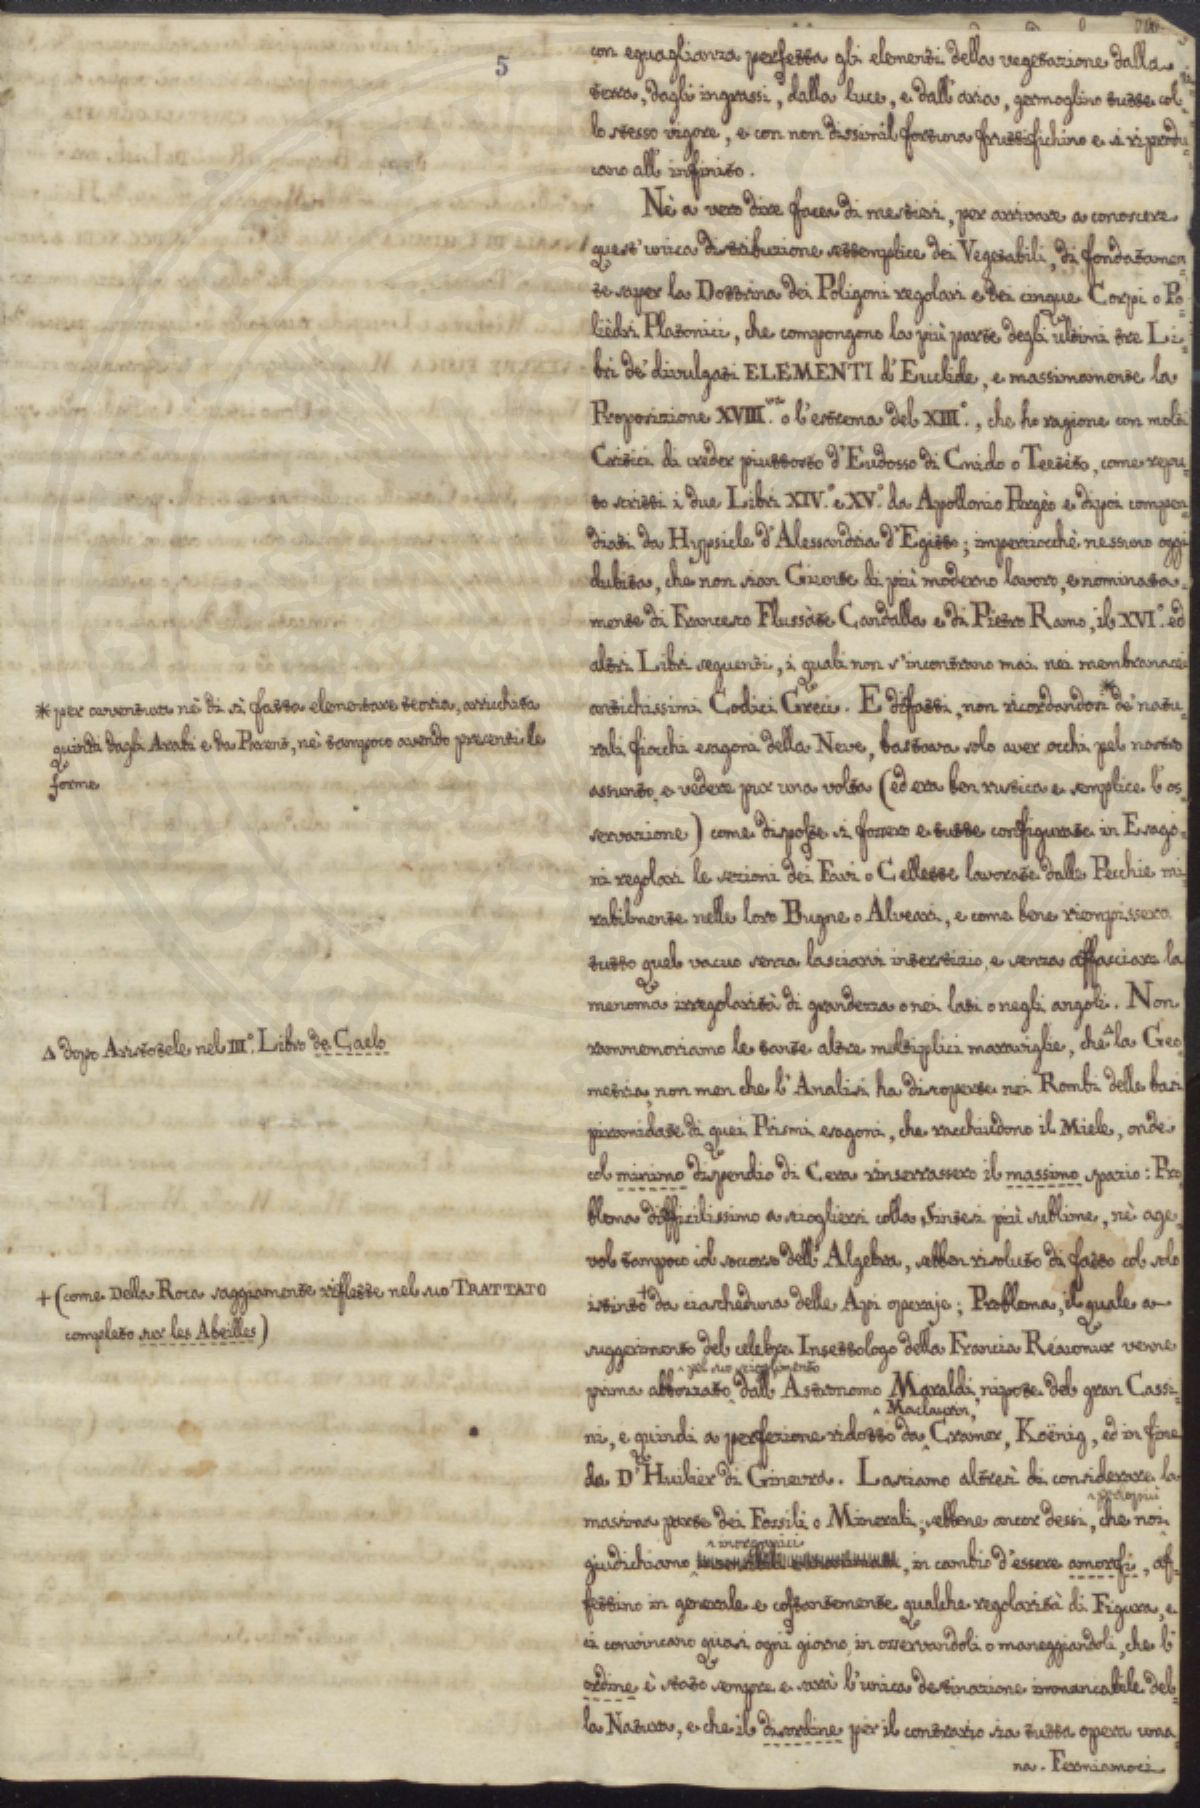 5
con eguaglianza perfetta gli elementi della vegetazione dalla
terra, dagli ingrassi, dalla luce, e dall'aria, germoglino tutte col-
lo stesso vigore, e con non dissimil fortuna fruttifichino e si riprodu-
cano all'infinito.
Nè a vero dire facea di mestieri, per arrivare a conoscere
quest'unica distribuzione settemplice dei Vegetabili, di fondatamen-
te saper la Dottrina dei Poligoni regolari e dei cinque Corpi o Po-
liëdri Platonici, che compongono la più parte degli ultimi tre Li-
bri de' divulgati ELEMENTI d'Euclide, e massimamente la
Proposizione XVIII.va o l'estrema del XIII.°, che ho ragione con molti
Critici di creder piuttosto d'Eudosso di Cnido o Teeteto, come repu-
to scritti i due Libri XIV.° e XV.° da Apollonio Pergèo e dipoi compen-
diati da Hypsicle d'Alessandria d'Egitto; imperciocchè nessuno oggi
dubita, che non sian Giunte di più moderno lavoro, e nominata-
mente di Francesco Flussàte Candalla e di Pietro Ramo, il XVI.° ed
altri Libri seguenti, i quali non s'incontrano mai nei membranacei
antichissimi Codici Greci. E difatti, non ricordandosi * de' natu-
rali fiocchi esagoni della Neve, bastava solo aver occhi pel nostro
assunto, e vedere pur una volta (ed era ben rustica e semplice l'os-
servazione) come disposte si fossero e tutte configurate in Esago-
ni regolari le sezioni dei Favi o Cellette lavorate dalle Pecchie mi-
rabilmente nelle loro Bugne o Alveari, e come bene riempissero
tutto quel vacuo senza lasciarvi interstizio, e senza affacciare la
menoma irregolarità di grandezza o nei lati o negli angoli. Non
rammemoriamo le tante altre multiplici maraviglie, che Δ la Geo-
metria, non men che l'Analisi ha discoperte nei Rombi delle basi
piramidate di quei Prismi esagoni, che racchiudono il Miele, onde
col minimo dispendio di Cera rinserrassero il massimo spazio: Pro-
blema difficilissimo a sciogliersi colla Sintesi più sublime, nè age-
vol tampoco col soccorso dell'Algebra, sebben risoluto di fatto col solo
istinto + da ciascheduna delle Api operaje; Problema, il quale a
suggerimento del celebre Insettologo della Francia Réaumur venne
pel suo scioglimento
prima abbozzato dall'Astronomo Maraldi, nipote del gran Cassi-
Maclaurin,
ni, e quindi a perfezione ridotto da Cramer, Koënig, ed in fine
da D'Huilier di Ginevra. Lasciamo altresì di considerare la
massima parte dei Fossili o Minerali, sebbene ancor dessi, che noi
inorganici
giudichiamo, in cambio d'essere amorfi, af-
fettino in generale e costantemente qualche regolarità di Figura, e
ci convincano quasi ogni giorno, in osservandoli o maneggiandoli, che l'
ordine è stato sempre e sarà l'unica destinazione immancabile del-
la Natura, e che il disordine per il contrario sia tutta opera uma-
na. Fermiamoci
* per avventura nè di sì fatta elementare teoria, arricchita
quindi dagli Arabi e da Parent, nè tampoco avendo presenti le
forme
Δ dopo Aristotele nel III.° Libro de Caelo
+ (come Della Roca saggiamente riflette nel suo TRATTATO
completo sur les Abeilles)